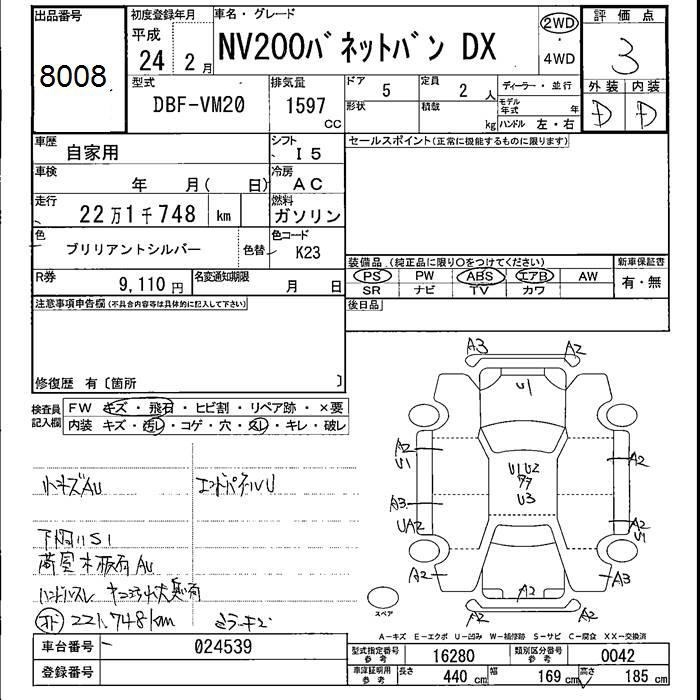 出品番号
8008
初度登録年月
平成
24 2月
車名・グレード
NV200バネットバン DX
2WD
・
4WD
評価点
3
外装 内装
D D
型式
DBF-VM20
排気量
1597
CC
ドア 5
定員 2人
形状
積載 kg
ディーラー・並行
モデル年式 年
ハンドル 左・右
車歴 自家用
シフト I5
車検 年 月( 日)
冷房 AC
走行 22万1千748 km
燃料 ガソリン
色 ブリリアントシルバー 色替
色コード K23
R券 9,110円
名変通知期限 月 日
セールスポイント(正常に機能するものに限ります)
装備品(純正品に限り○をつけてください)
PS PW ABS エアB AW
SR ナビ TV カワ
新車保証書
有・無
後日品
注意事項申告欄(不具合内容等は具体的に記入して下さい)
修復歴 有〔箇所 〕
検査員
記入欄
FW キズ・飛石・ヒビ割・リペア跡・×要
内装 キズ・汚レ・コゲ・穴・スレ・キレ・破レ
小キズAU エンドパネルU
下廻りS1
荷室木板有AU
ハンドルスレ
221,748km
A3 A2
U1
A2
U1
U1U2
U3
A2
A3
UA2
A2
U1
A2 A2 A3
A2
スペア
A―キズ E―エクボ U―凹み W―補修跡 S―サビ C―腐食 XX―交換済
車台番号 024539
登録番号
型式指定番号
参考
16280
類別区分番号
参考
0042
車庫証明用
参考
長さ 440 cm 幅 169 cm 高さ 185 cm